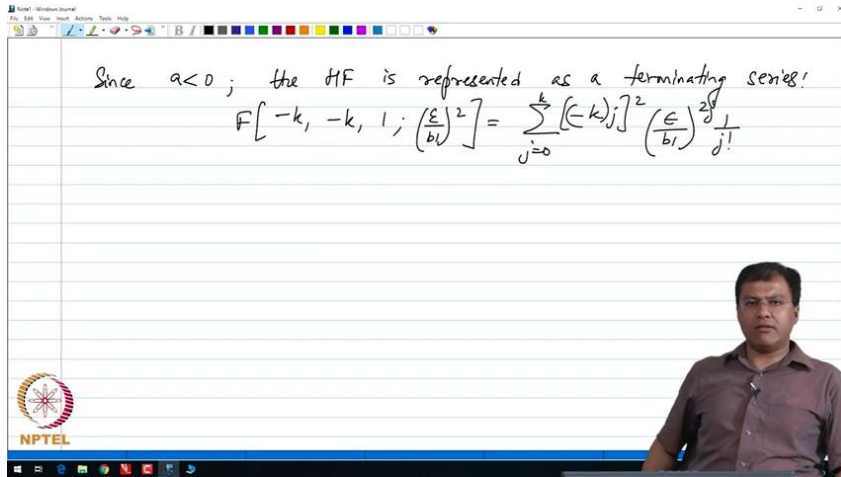 Note1 - Windows Journal
File Edit View Insert Actions Tools Help
Since a<0 ; the HF is represented as a terminating series!
F[-k, -k, 1 ; (ε/b₁)²] = ∑_{j=0}^{k} [(-k)j]² (ε/b₁)^{2j} 1/j!
NPTEL